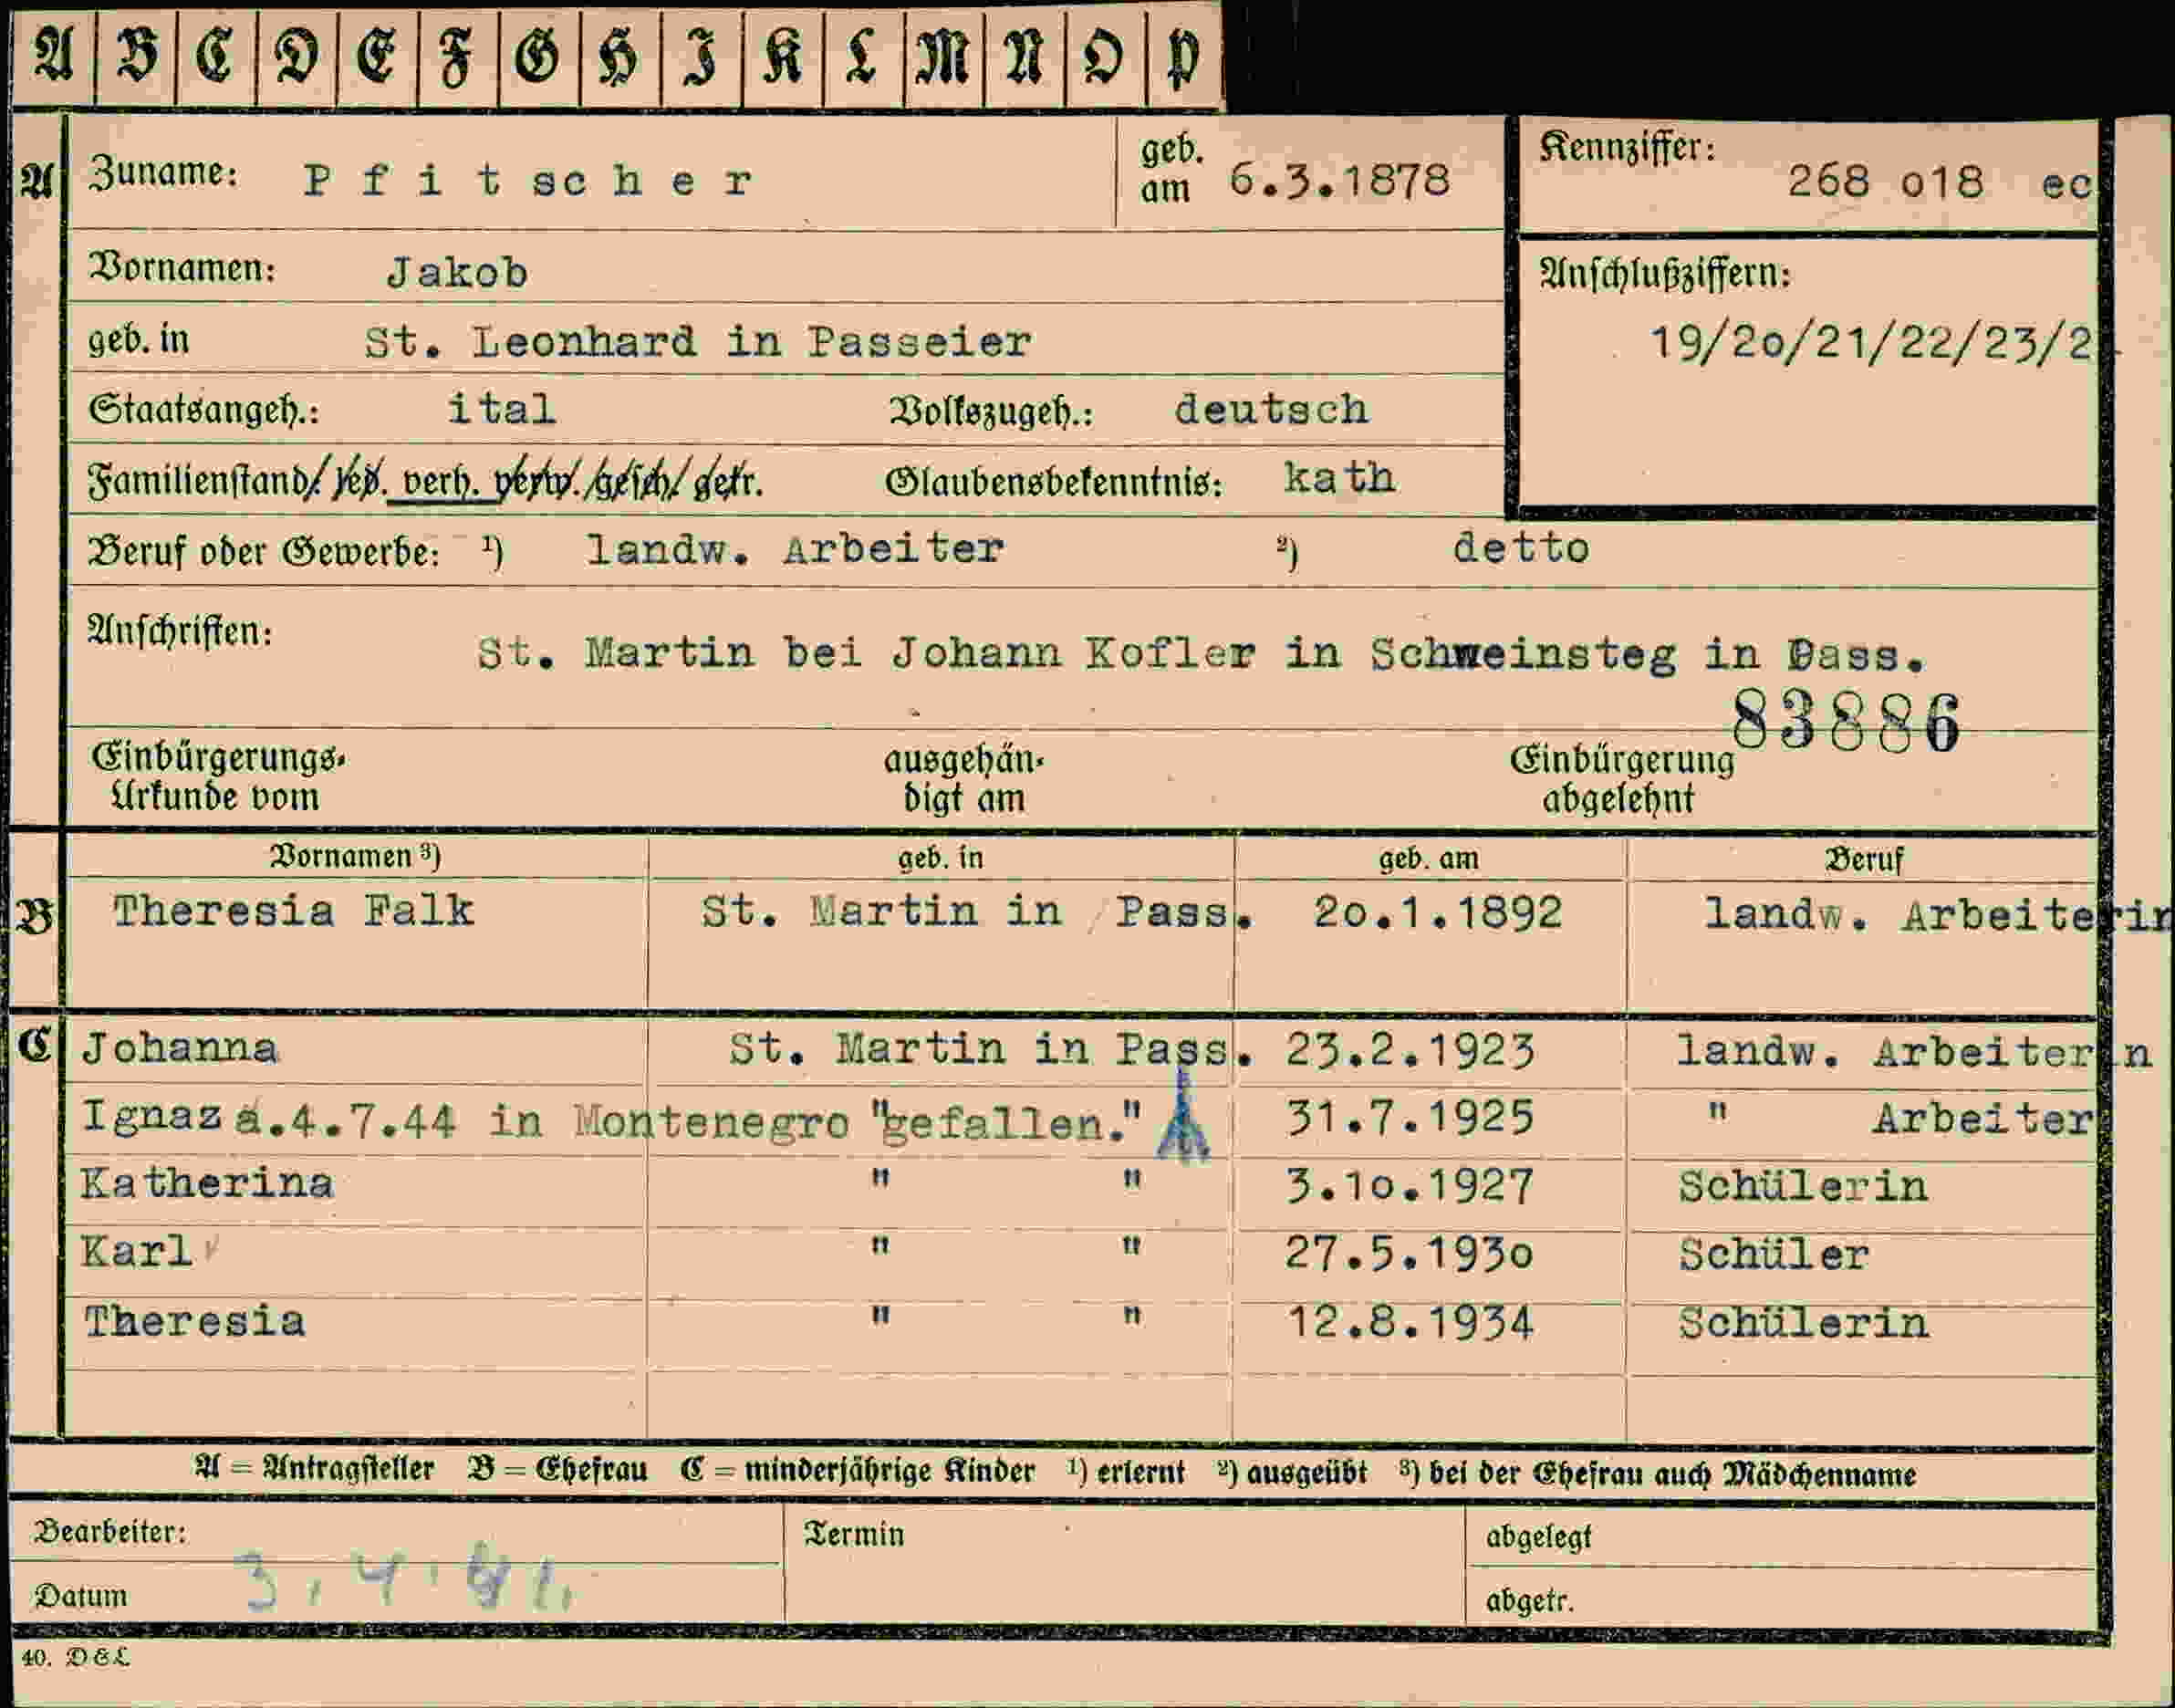 A B C D E F G H I K L M N O P
A Zuname: Pfitscher geb. am 6.3.1878 Kennziffer: 268 o18 ec
Vornamen: Jakob Anschlußziffern:
geb. in St. Leonhard in Passeier 19/2o/21/22/23/2
Staatsangeh.: ital Volkszugeh.: deutsch
Familienstand: led. verh. verw. gesch. getr. Glaubensbekenntnis: kath
Beruf oder Gewerbe: ¹) landw. Arbeiter ²) detto
Anschriften: St. Martin bei Johann Kofler in Schweinsteg in Pass.
83886
Einbürgerungs- ausgehän- Einbürgerung
Urkunde vom digt am abgelehnt
Vornamen ³) geb. in geb. am Beruf
B Theresia Falk St. Martin in Pass. 2o.1.1892 landw. Arbeiterin
C Johanna St. Martin in Pass. 23.2.1923 landw. Arbeiterin
Ignaz a.4.7.44 in Montenegro "gefallen." 31.7.1925 " Arbeiter
Katherina " " 3.1o.1927 Schülerin
Karl " " 27.5.193o Schüler
Theresia " " 12.8.1934 Schülerin
A = Antragsteller B = Ehefrau C = minderjährige Kinder ¹) erlernt ²) ausgeübt ³) bei der Ehefrau auch Mädchenname
Bearbeiter: Termin abgelegt
Datum 3.4. abgetr.
40. D&L